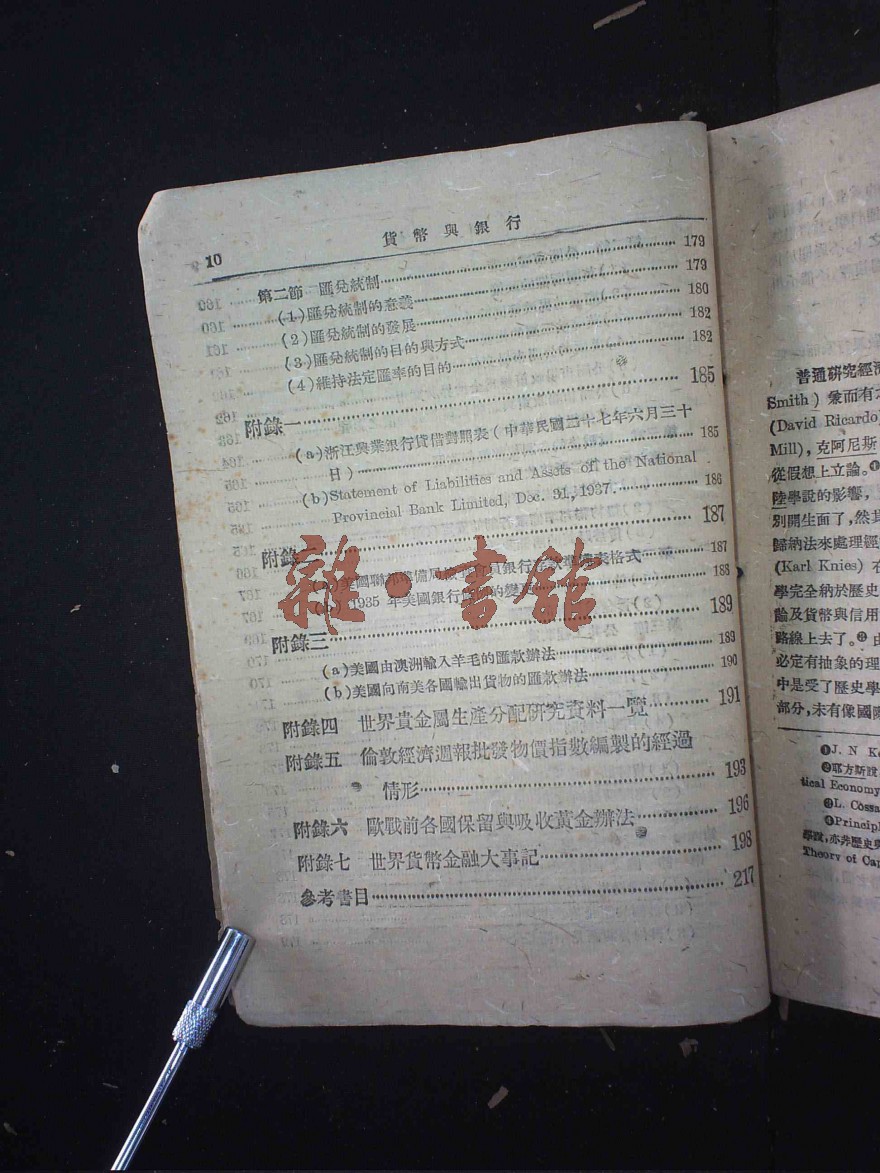 10
貨幣與銀行
第二節 匯兌統制 179
(1)匯兌統制的意義 179
(2)匯兌統制的發展 180
(3)匯兌統制的目的與方式 182
(4)維持法定匯率的目的 182
附錄一 185
(a)浙江興業銀行貸借對照表(中華民國二十七年六月三十
日) 185
(b)Statement of Liabilities and Assets of the National
Provincial Bank Limited, Dec. 31, 1937. 186
附錄 187
(a)美國聯邦準備 會員銀行 格式 187
1935 年美國銀行 的變 188
附錄三 189
(a)美國由澳洲輸入羊毛的匯款辦法 189
(b)美國向南美各國輸出貨物的匯款辦法 190
附錄四 世界貴金屬生產分配研究資料一覽 191
附錄五 倫敦經濟週報批發物價指數編製的經過
情形 193
附錄六 歐戰前各國保留與吸收黃金辦法 196
附錄七 世界貨幣金融大事記 198
參考書目 217
雜·書館
普通研究經濟
Smith) 兼而有之
(David Ricardo)
Mill), 克阿尼斯
從假想上立論。❶
陸學說的影響,
別開生面了,然其
歸納法來處理經
(Karl Knies) 在
學完全納於歷史
論及貨幣與信用
路線上去了。❹由
必定有抽象的理
中是受了歷史學
部分,未有像國際
❶J. N Ke
❷耶方斯說
tical Economy
❸L. Cossa
❹Principl
學說,亦非歷史與
Theory of Cap